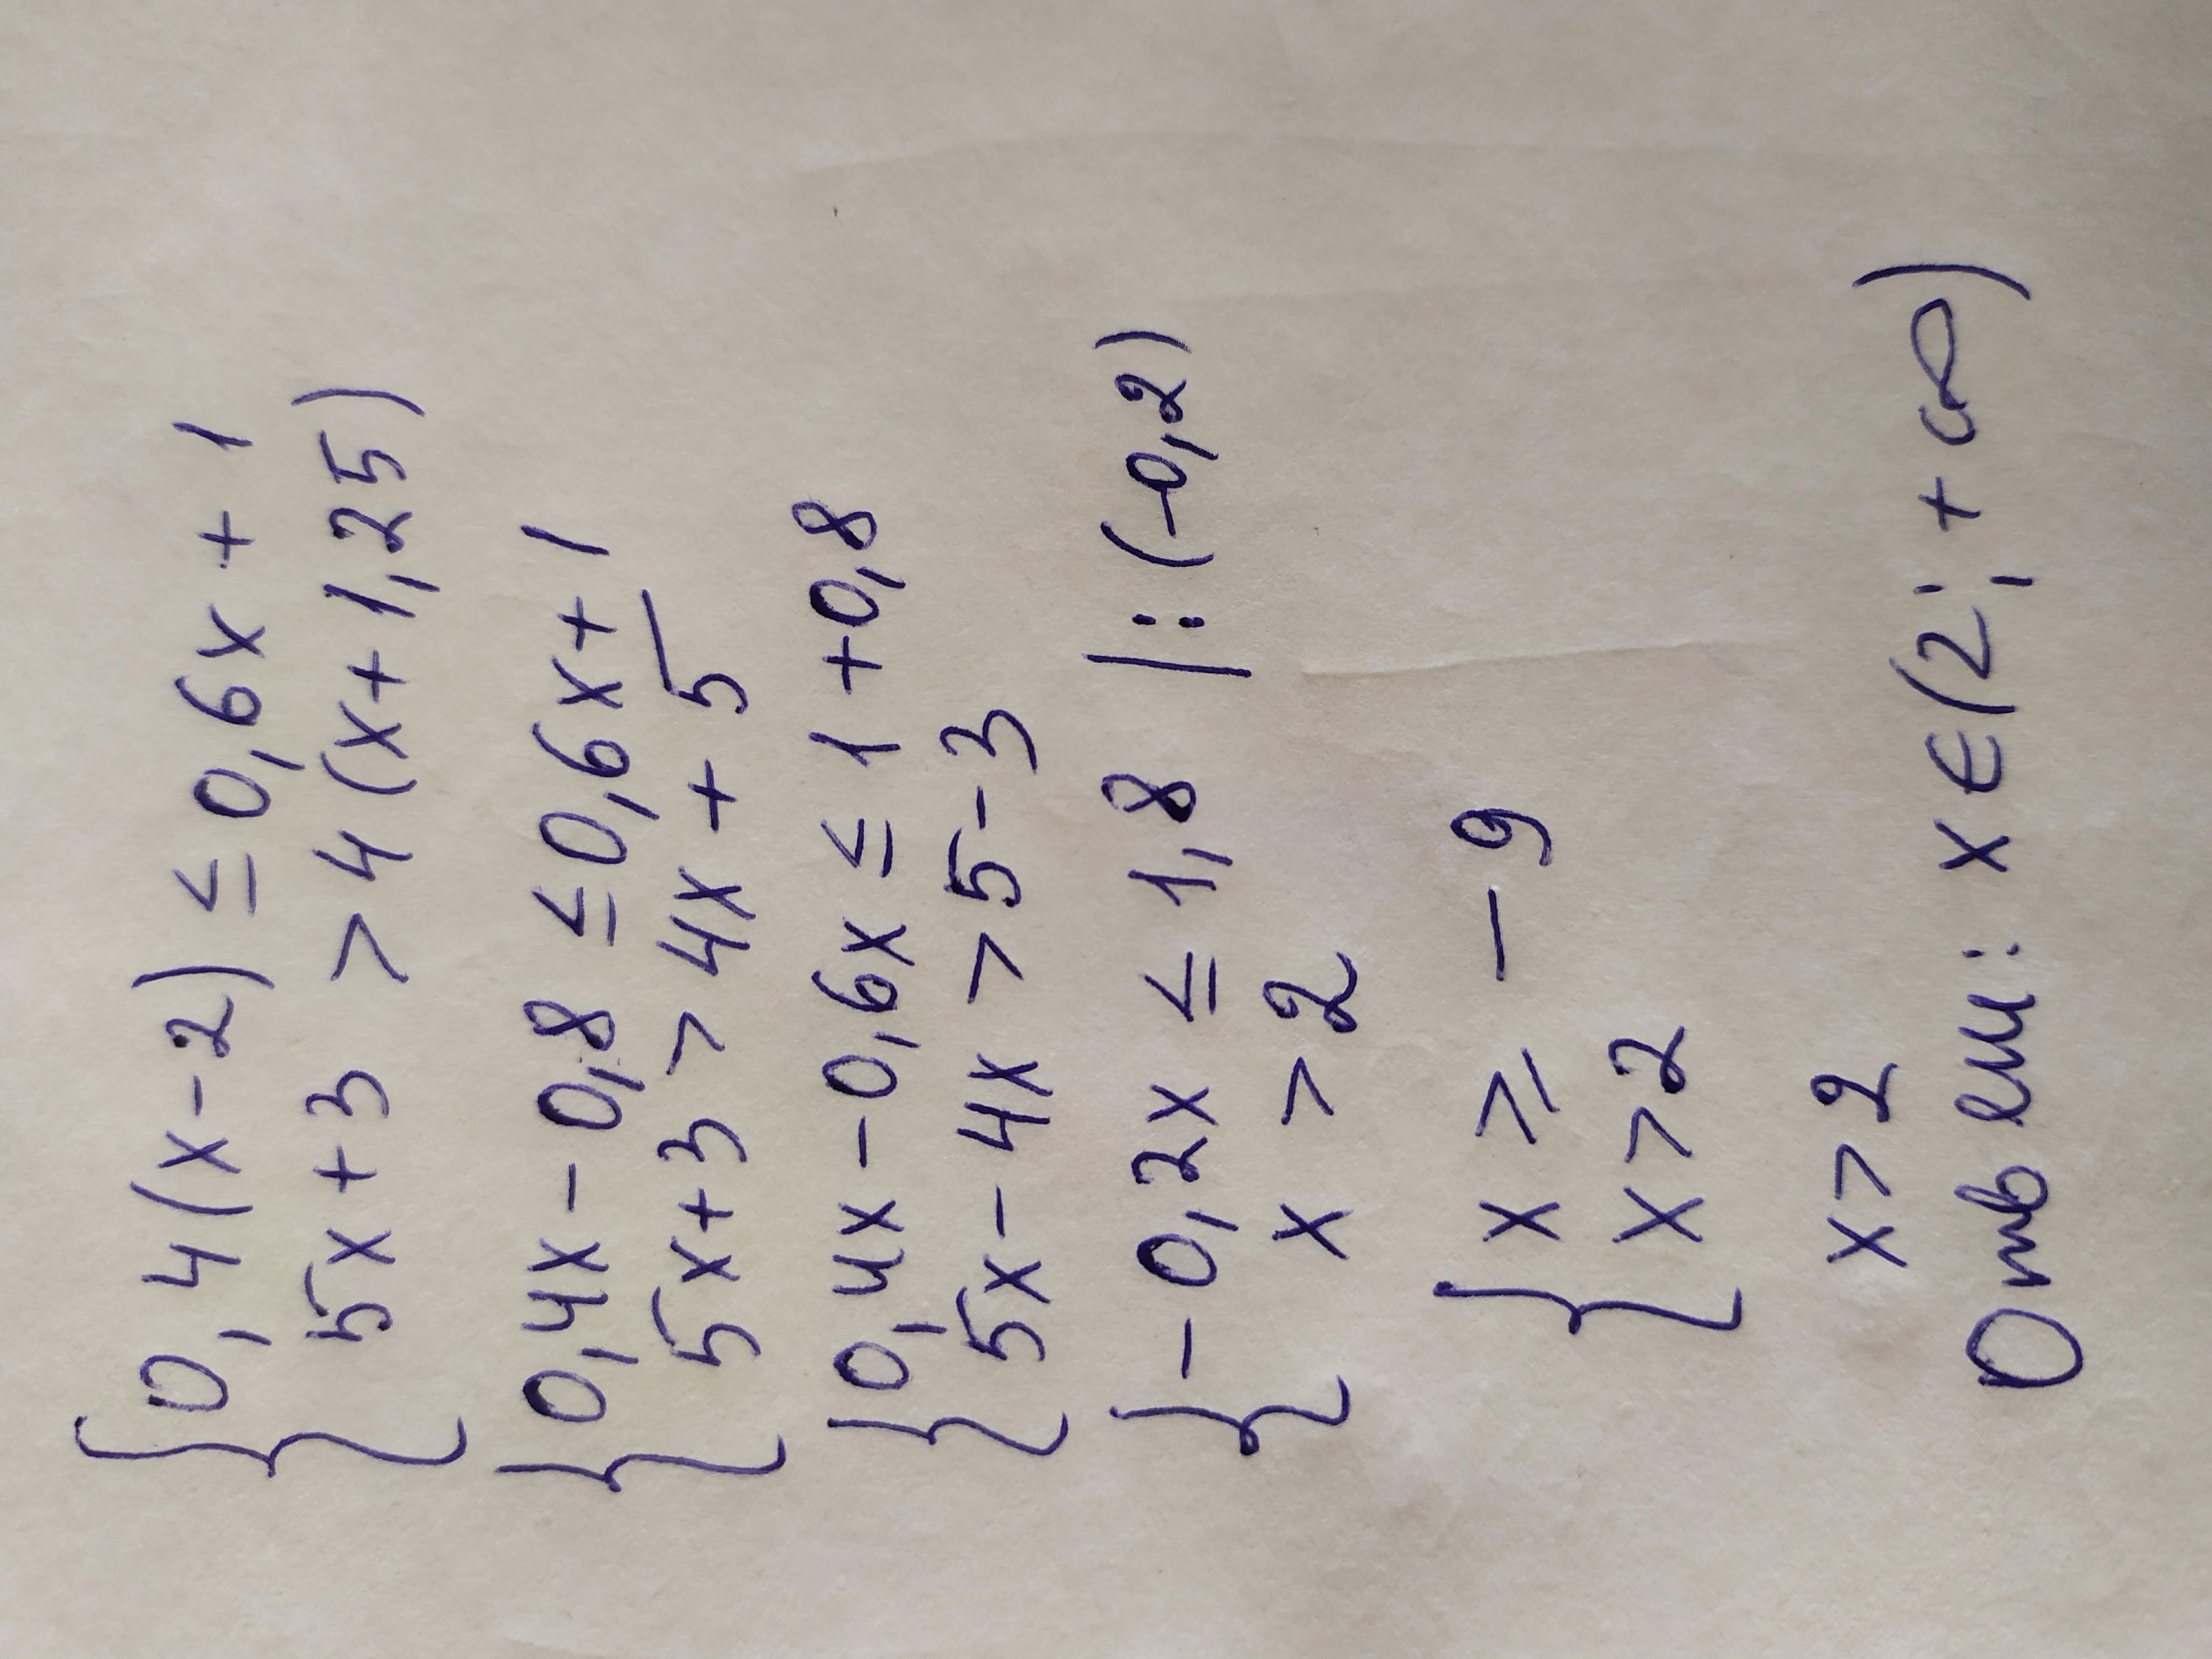 {0,4(x-2) ≤ 0,6x + 1
5x + 3 > 4(x + 1,25)
{0,4x - 0,8 ≤ 0,6x + 1
5x + 3 > 4x + 5
{0,4x - 0,6x ≤ 1 + 0,8
5x - 4x > 5 - 3
{-0,2x ≤ 1,8 |:(-0,2)
x > 2
{x ≥ -9
x > 2
x > 2
Ответ: x ∈ (2; +∞)